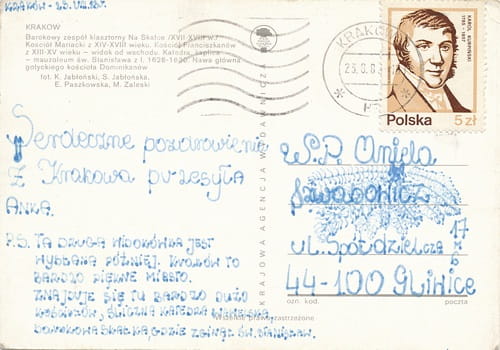 KRAKÓW - 23.VIII.83r.
KRAKÓW
Barokowy zespół klasztorny Na Skałce /XVII-XVIII w./
Kościół Mariacki z XIV-XVIII wieku. Kościół Franciszkanów
z XIII-XV wieku – widok od wschodu. Katedra, kaplica
– mauzoleum św. Stanisława z l. 1626-1630. Nawa główna
gotyckiego kościoła Dominikanów
fot. K. Jabłoński, S. Jabłońska,
E. Paszkowska, M. Zaleski
KRAKÓW
23.8.83
KAROL KURPIŃSKI
1785-1857
Polska 5 zł
Serdeczne pozdrowienia
Z Krakowa przesyła
ANKA.
P.S. TA DRUGA WIDOKÓWKA JEST
PÓŹNIEJ. KRAKÓW TO
BARDZO PIĘKNE MIASTO.
ZNAJDUJE SIĘ TU BARDZO DUŻO
KOŚCIOŁÓW, ŚLICZNA KATEDRA WAWELSKA,
SKAŁKA, GDZIE ZGINĄŁ ŚW. STANISŁAW.
KRAJOWA AGENCJA WYDAWNICZA
W.P. Aniela
ul. Spółdzielcza 17
44-100 Gliwice
ozn. kod. poczta
Wszelkie prawa zastrzeżone